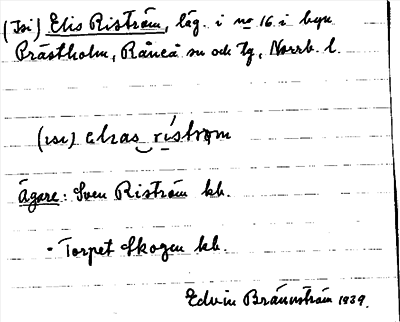 (Isi) Elis Riström, läg. i no 16 i byn
Prästholm, Råneå sn och tg, Norrb. l.
(isi) elias ríström
Ägare: Sven Riström kb.
- Torpet Skogen kb.
Edvin Brännström 1939.